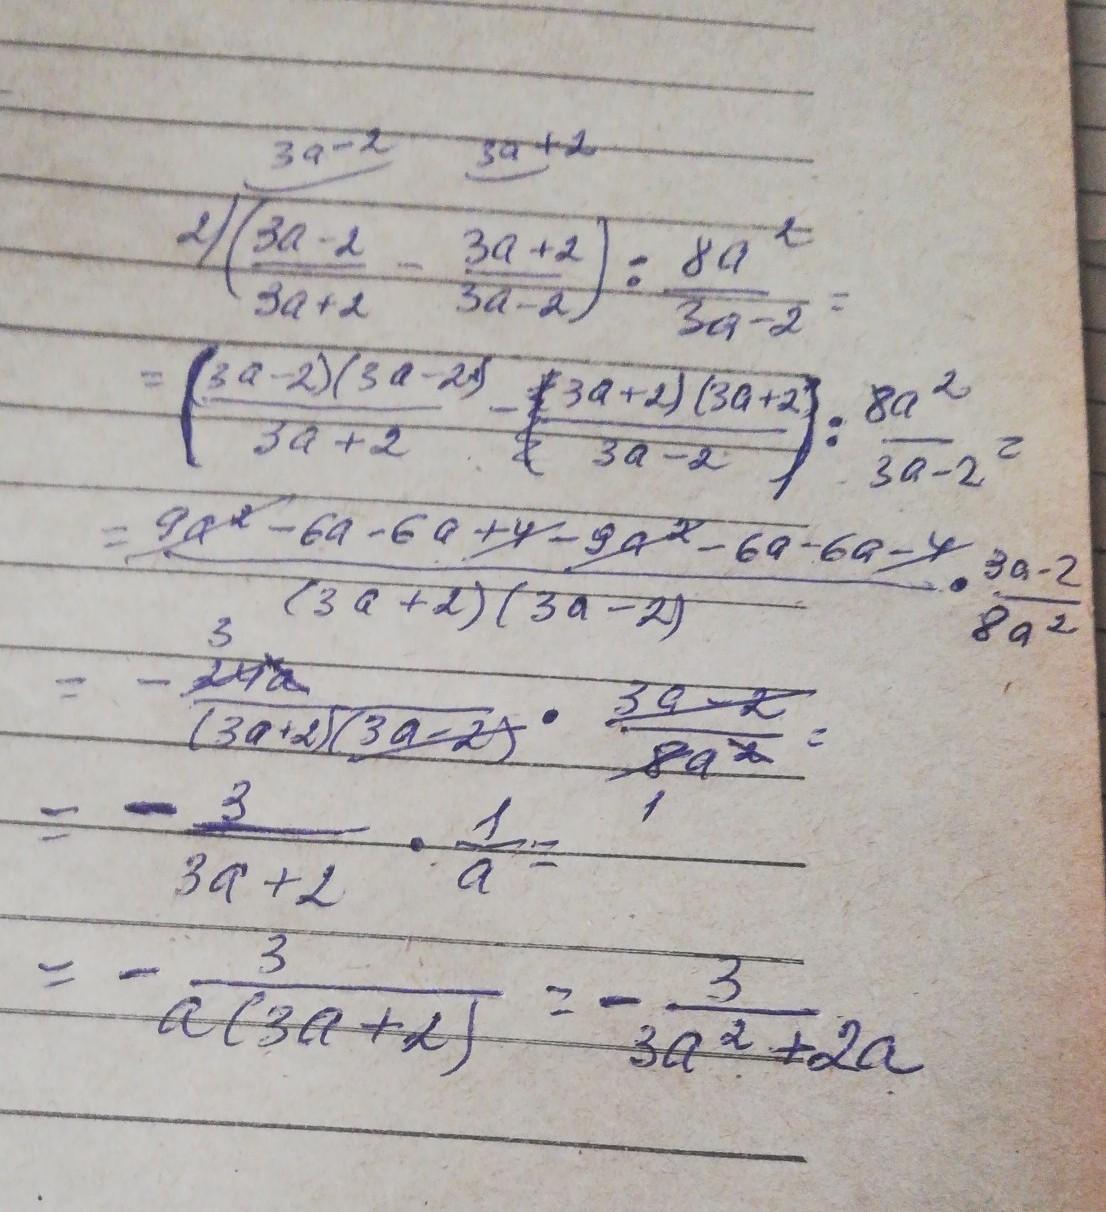 3a-2 3a+2
2) (3a-2/3a+2 - 3a+2/3a-2) : 8a²/3a-2 =
= ((3a-2)(3a-2)/3a+2 - (3a+2)(3a+2)/3a-2) : 8a²/3a-2 =
= 9a²-6a-6a+4-9a²-6a-6a-4/(3a+2)(3a-2) · 3a-2/8a²
3
= - 24a/(3a+2)(3a-2) · 3a-2/8a² =
1
= - 3/3a+2 · 1/a =
= - 3/a(3a+2) = - 3/3a²+2a